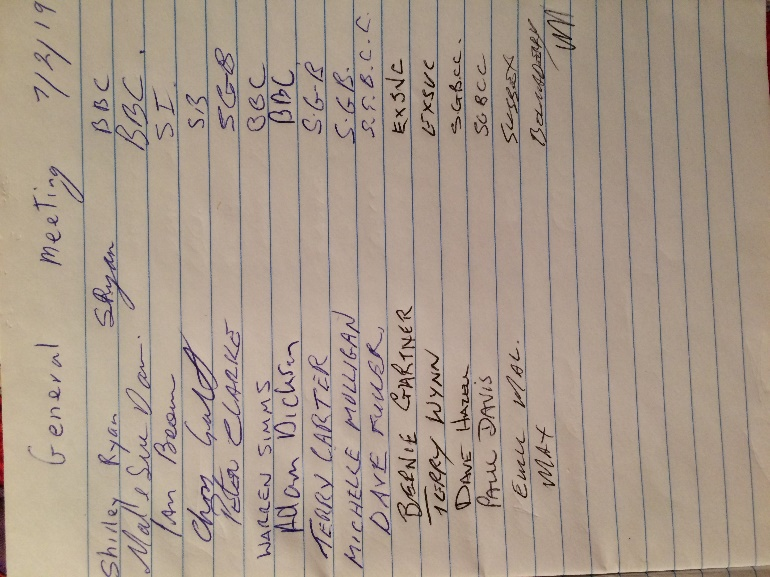 General Meeting 7/2/19
Shirley Ryan SRyan BBC
Sue BBC.
Ian S I.
SB
Peter CLARKE SGB
WARREN SIMMS BBC
Allan Dickson BBC
TERRY CARTER S.G.B
MICHELLE MULLIGAN S.G.B.
DAVE FULLER S.G.B.C.C.
BERNIE GARTNER EXSVC
TERRY WYNN EXSVC
DAVE SGBCC.
PAUL DAVIS SGBCC
MAL. SUSSEX
MAX